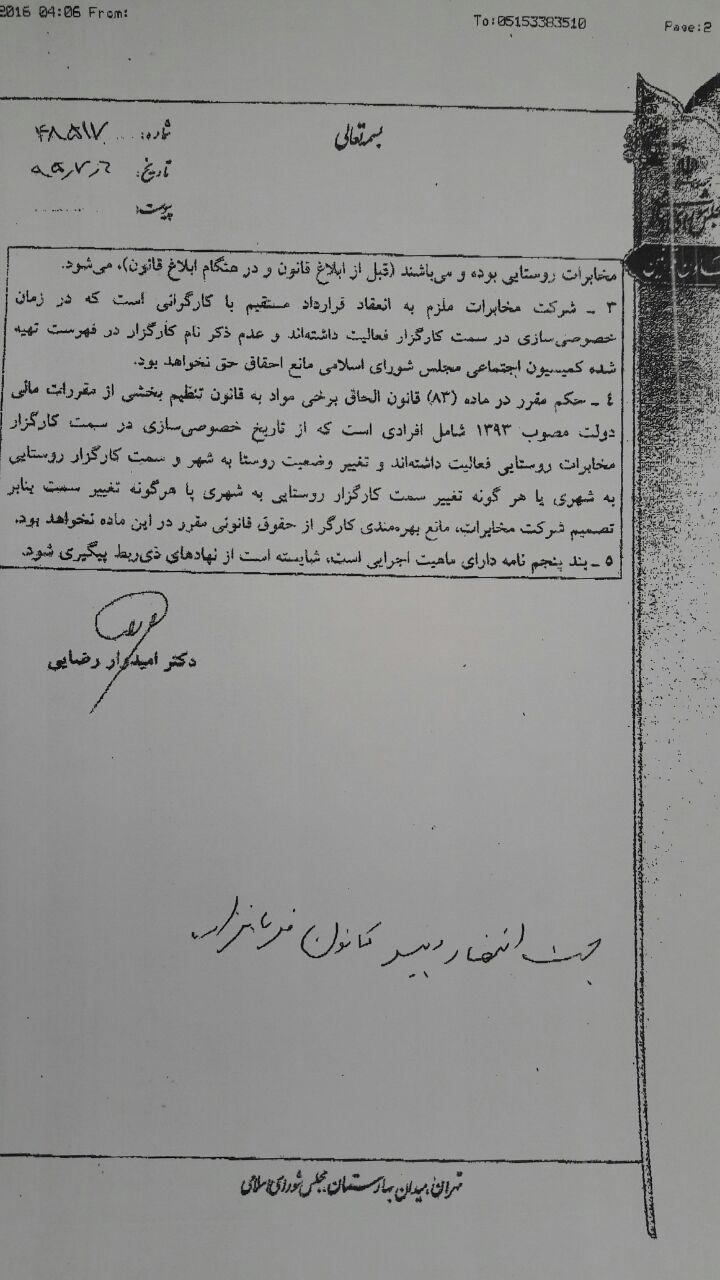 2016 04:06 From:
To:05153383510
Page:2
بسمه تعالی
شماره: ۴۸۵۱۷
تاریخ:
پیوست:
مخابرات روستایی بوده و می‌باشند (قبل از ابلاغ قانون و در هنگام ابلاغ قانون)، می‌شود.
۳ ـ شرکت مخابرات ملزم به انعقاد قرارداد مستقیم با کارگرانی است که در زمان
خصوصی‌سازی در سمت کارگزار فعالیت داشته‌اند و عدم ذکر نام کارگزار در فهرست تهیه
شده کمیسیون اجتماعی مجلس شورای اسلامی مانع احقاق حق نخواهد بود.
٤ ـ حکم مقرر در ماده (۸۳) قانون الحاق برخی مواد به قانون تنظیم بخشی از مقررات مالی
دولت مصوب ۱۳۹۳ شامل افرادی است که از تاریخ خصوصی‌سازی در سمت کارگزار
مخابرات روستایی فعالیت داشته‌اند و تغییر وضعیت روستا به شهر و سمت کارگزار روستایی
به شهری یا هر گونه تغییر سمت کارگزار روستایی به شهری یا هرگونه تغییر سمت بنابر
تصمیم شرکت مخابرات، مانع بهره‌مندی کارگر از حقوق قانونی مقرر در این ماده نخواهد بود.
۵ ـ بند پنجم نامه دارای ماهیت اجرایی است، شایسته است از نهادهای ذی‌ربط پیگیری شود.
دکتر امیدوار رضایی
کانون
تهران، میدان بهارستان، مجلس شورای اسلامی